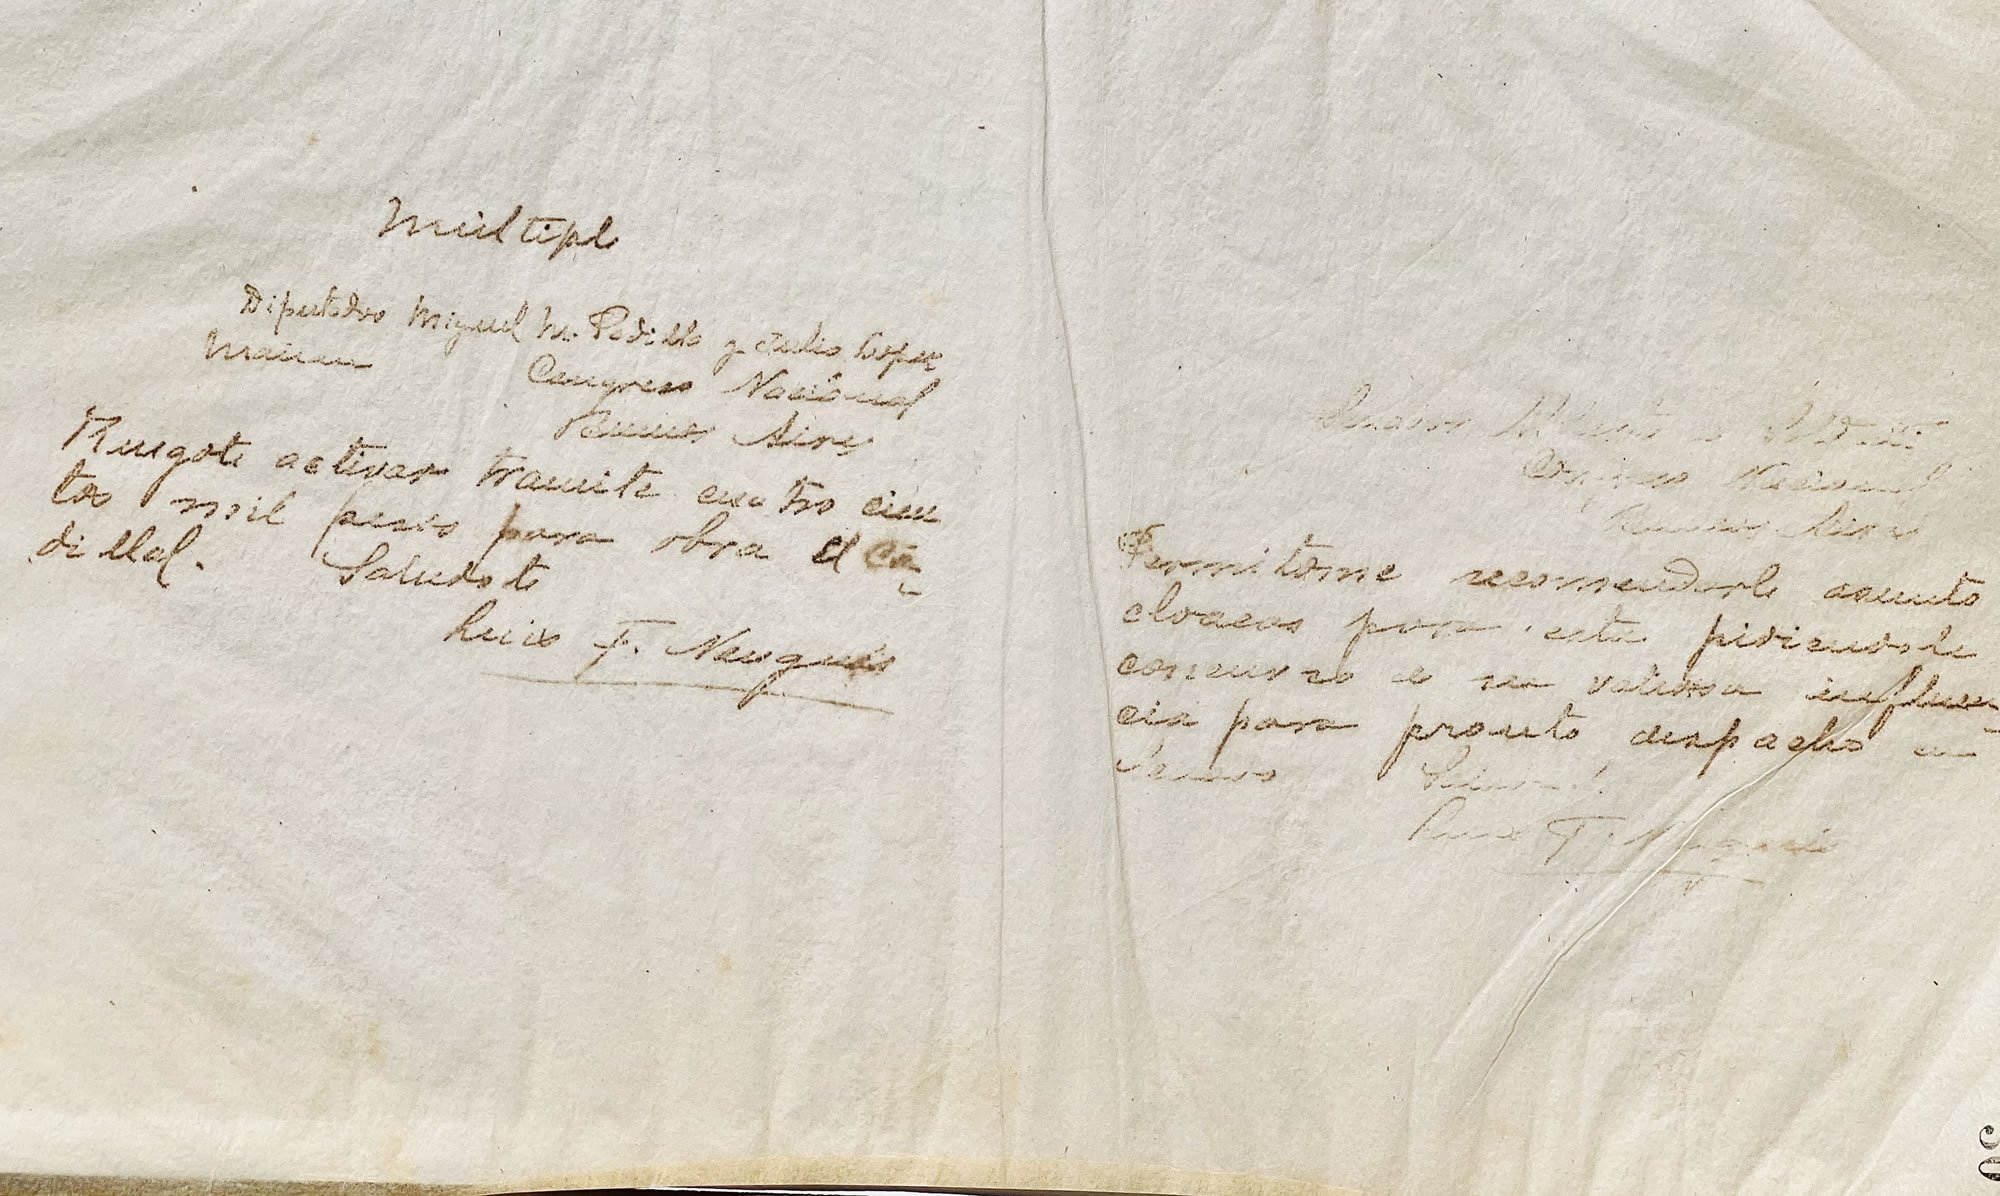 Múltiple
Diputados Miguel M. Padilla y Julio Lopez
Mañan
Congreso Nacional
Buenos Aires
Ruegote activar tramite cuatro cien
tos mil pesos para obra el Ca-
dillal. Saludote
Luis F. Nougués
Senador Alberto de Soldati
Congreso Nacional
Buenos Aires
Permitome recomendarle asunto
cloacas para esta pidiendole
concurso de su valiosa influen-
cia para pronto despacho en
Senado
Luis F. Nougués